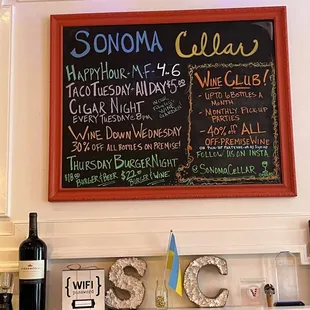 SONOMA Cellar
HAPPY HOUR - M-F - 4-6
TACO TUESDAY - ALL DAY $5.00
CIGAR NIGHT
EVERY TUESDAY @ 8PM
WINE DOWN WEDNESDAY
30% OFF ALL BOTTLES ON PREMISE!
THURSDAY BURGER NIGHT
BURGER & BEER $22
BURGER & WINE
WINE CLUB!
- UP TO 6 BOTTLES A
MONTH
- MONTHLY PICK-UP
PARTIES
- 40% OFF ALL
OFF-PREMISE WINE
FOLLOW US ON INSTA
@SONOMACELLAR
WIFI
password
S C